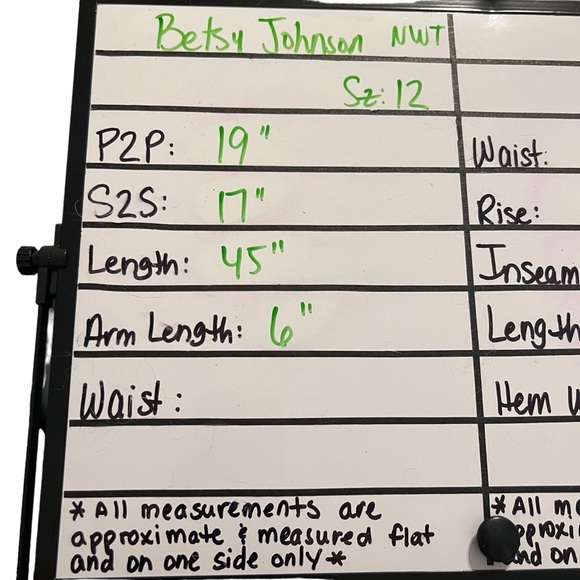 Betsy Johnson NWT
Sz: 12
P2P: 19"
S2S: 17"
Length: 45"
Arm Length: 6"
Waist:
*All measurements are
approximate & measured flat
and on one side only*
Waist:
Rise:
Inseam
Length
Hem
*All me
pproxi
and on